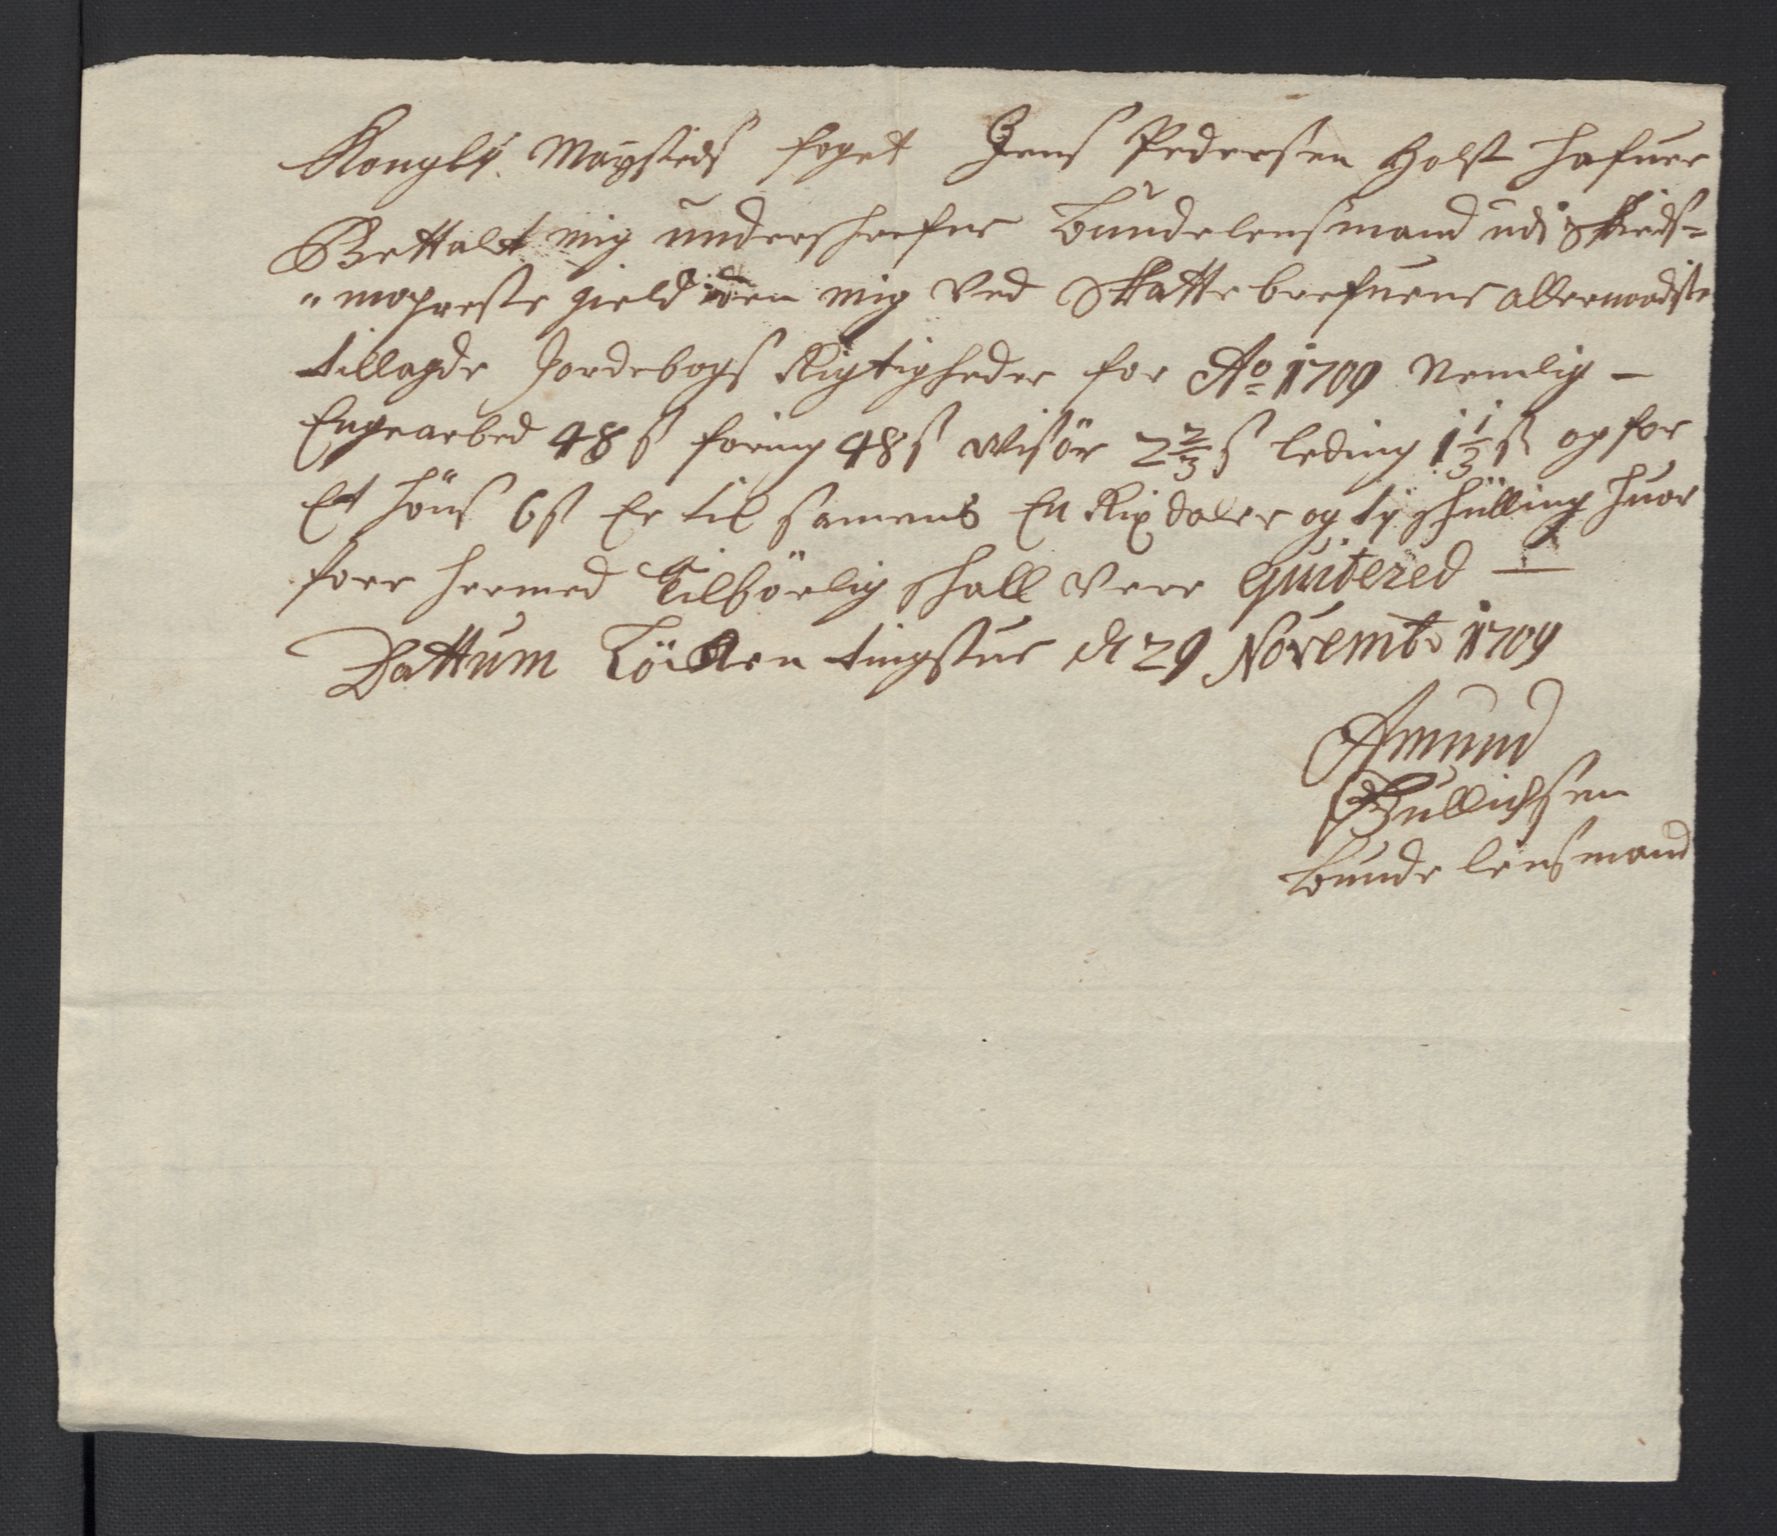 Kongl: Maysteds foget Jens Pedersen Holst hafuer
Bettalt mig underschrefne bundelensmand udi Skeds=
"mo preste gield den mig ved Skatte brefuene allernaadiste
tillagde Jordebogs Rigtigheder for Ao 1709 Nemlig -
Engearbed 48 s foring 48 s Wisöre 2 2/3 s leding 1 1/3 s og for
Et höns 6 s Er til samens En Rixdaler og ti schilling huor
forr hermed Tilbörlig schall verre quitered —
Dattum Löcken tingstue d 29 Novembr 1709
Amund
Gullichsen
bunde lensmand